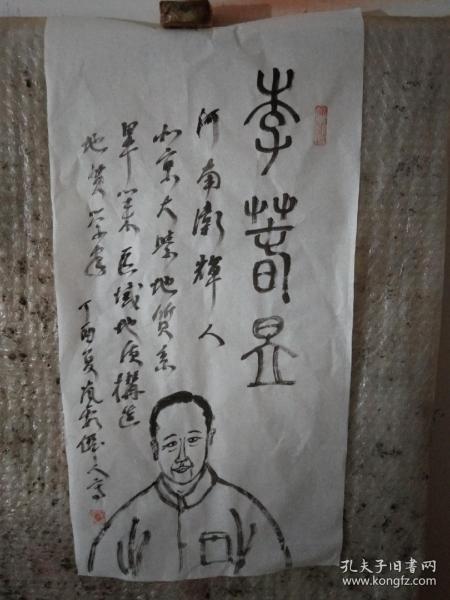 李萅昱
河南衛輝人
北京大學地質系
畢業區域地质構造
地質学家 丁酉夏
孔夫子旧书网
www.kongfz.com